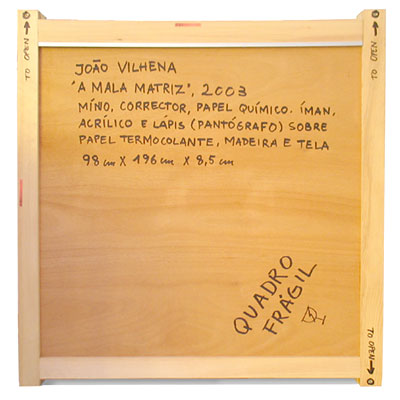 TO OPEN
TO OPEN
JOÃO VILHENA
"A MALA MATRIZ", 2003
MÍNO, CORRECTOR, PAPEL QUÍMICO. ÍMAN,
ACRÍLICO E LÁPIS (PANTÓGRAFO) SOBRE
PAPEL TERMOCOLANTE, MADEIRA E TELA
98 cm X 196 cm X 8,5 cm
QUADRO
FRÁGIL
TO OPEN